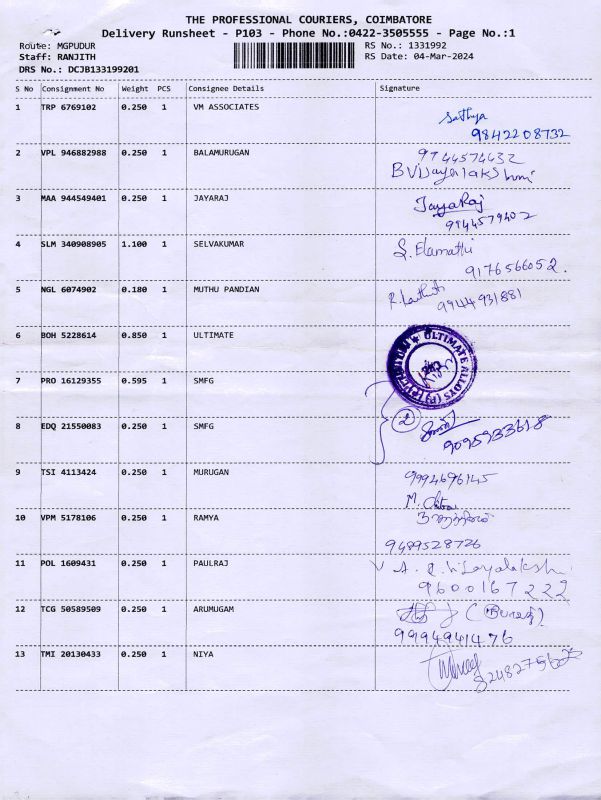 THE PROFESSIONAL COURIERS, COIMBATORE
Delivery Runsheet - P103 - Phone No.:0422-3505555 - Page No.:1
Route: MGPUDUR
RS No.: 1331992
Staff: RANJITH
RS Date: 04-Mar-2024
DRS No.: DCJB133199201
S No Consignment No Weight PCS Consignee Details Signature
1 TRP 6769102 0.250 1 VM ASSOCIATES
Sathya
9842208732
2 VPL 946882988 0.250 1 BALAMURUGAN
9744574432
BVijayalakshmi
3 MAA 944549401 0.250 1 JAYARAJ
JayaRaj
9944579402
4 SLM 340908905 1.100 1 SELVAKUMAR
S. Elamathi
9176566052.
5 NGL 6074902 0.180 1 MUTHU PANDIAN
9944931881
6 BOH 5228614 0.850 1 ULTIMATE
ULTIMATE ALLOYS (P)
7 PRO 16129355 0.595 1 SMFG
2
8 EDQ 21550083 0.250 1 SMFG
9095933618
9 TSI 4113424 0.250 1 MURUGAN
9994696145
M. Chitra
10 VPM 5178106 0.250 1 RAMYA
9489528726
11 POL 1609431 0.250 1 PAULRAJ
9600167222
12 TCG 50589509 0.250 1 ARUMUGAM
9994941476
13 TMI 20130433 0.250 1 NIYA